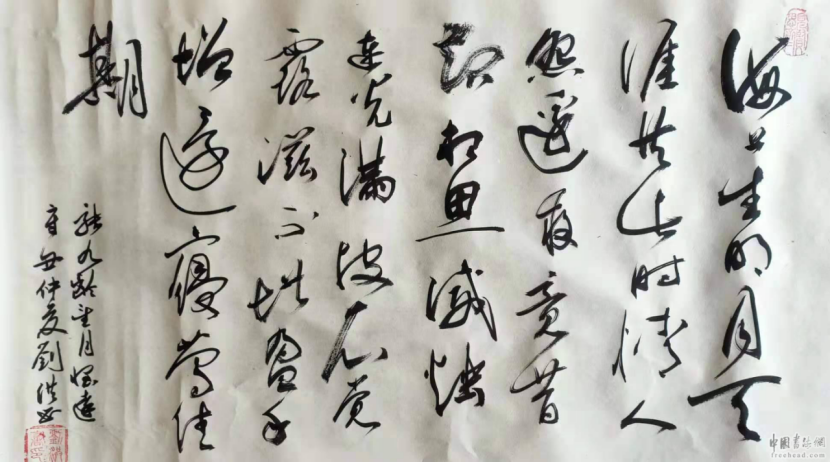 海上生明月天
涯共此时情人
怨遥夜竟昔
起相思滅烛
连光满披衣觉
露滋不堪盈手
增還寝夢佳
期
张九龄望月怀遠
辛丑仲夏劉洪
中國書法網
freehead.com